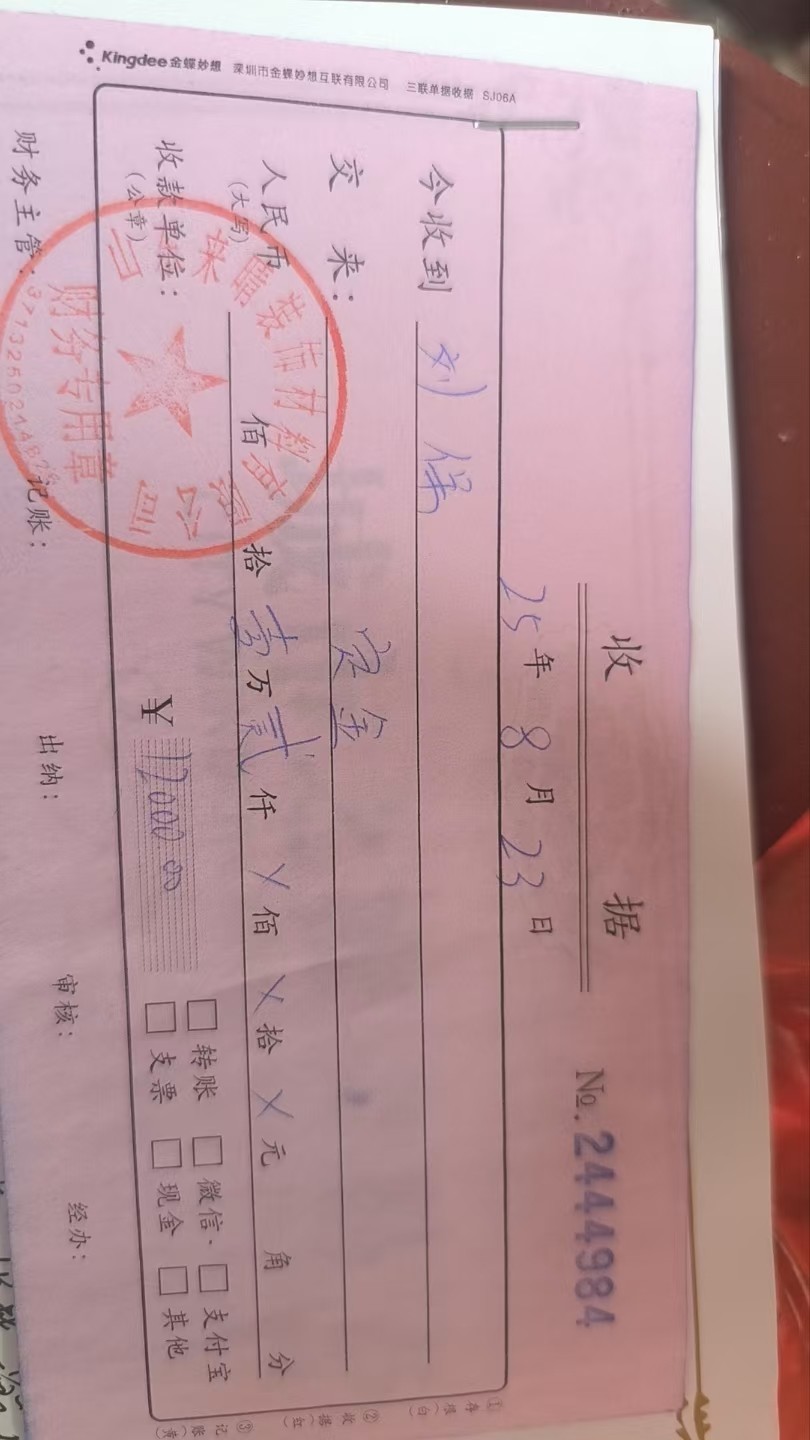 收 据
№.2444984
25年8月23日
今收到 刘保
交 来： 定金
人民币
(大写)
佰 拾 壹万 贰仟 X佰 X拾 X元 角 分
收款单位：
(公章)
¥ 12000.00
□转账 □微信 □支付宝
□支票 □现金 □其他
财务主管： 记账： 出纳： 审核： 经办：
Kingdee金蝶妙想 深圳市金蝶妙想互联有限公司 三联单据收据 SJ06A
装饰材料有限公司
财务专用章
①存根(白)
②收据(红)
③记账(黄)